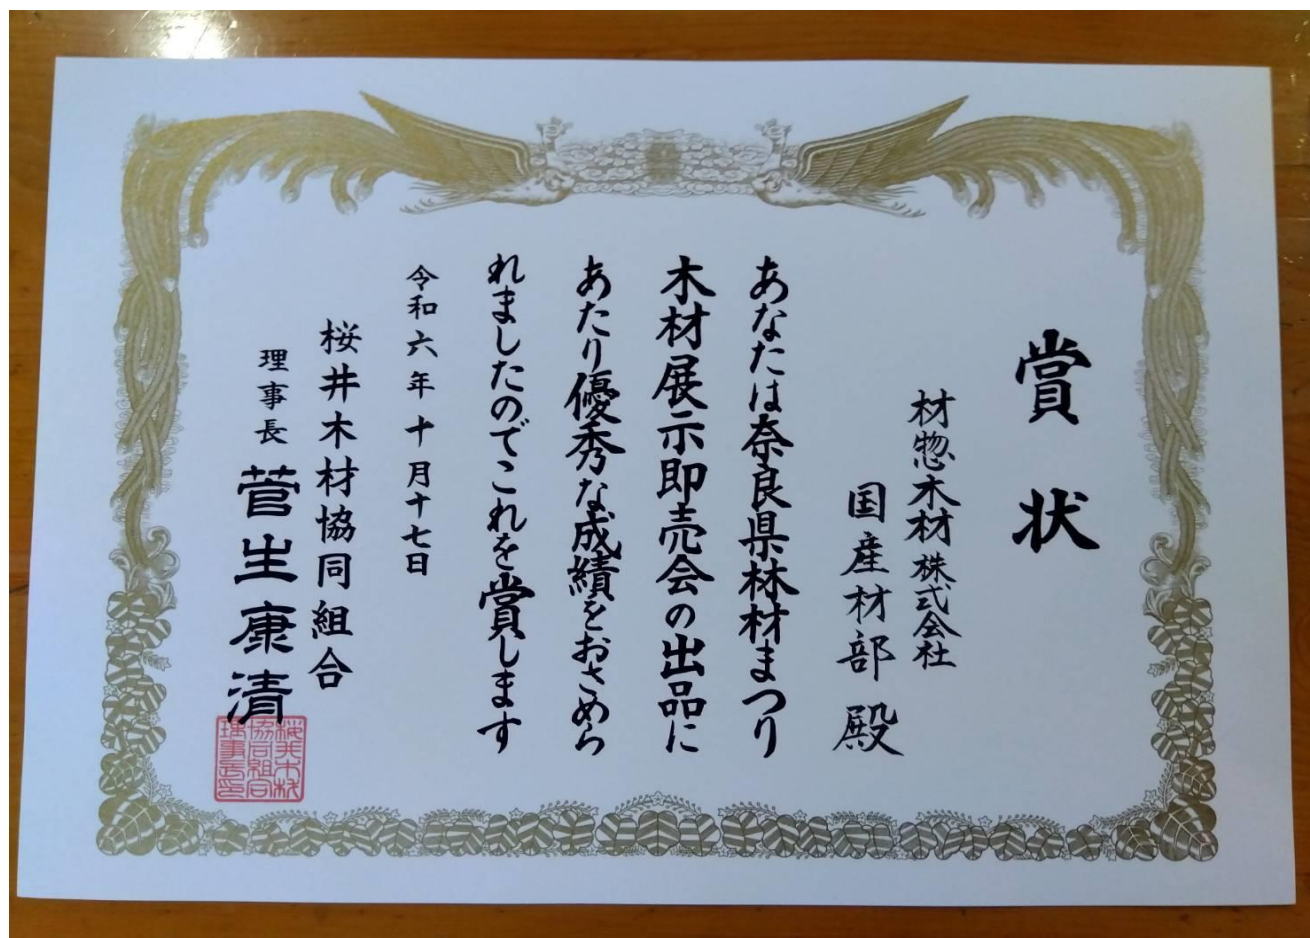 賞状
材惣木材株式会社
国産材部 殿
あなたは奈良県林材まつり
木材展示即売会の出品に
あたり優秀な成績をおさめら
れましたのでこれを賞します
令和六年十月十七日
桜井木材協同組合
理事長 菅生康清
桜井木材
協同組合
理事長印